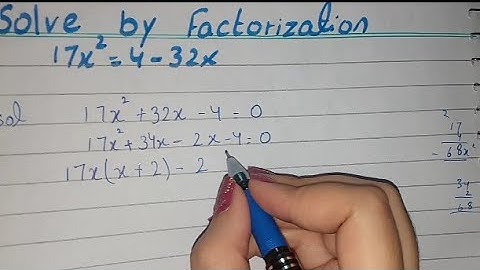 Solve by Factorization
17x² = 4 - 32x
sol 17x² + 32x - 4 = 0
17x² + 34x - 2x - 4 = 0
17x(x + 2) - 2
2
17
- 68x²
34
2
68